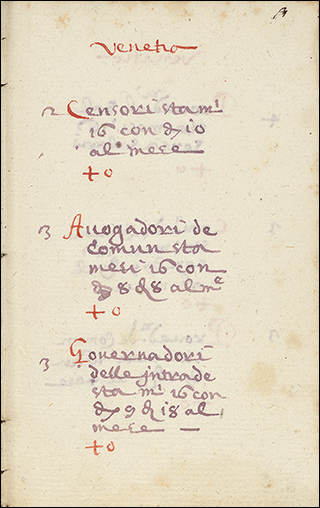 Venetia
2 Censori sta mi
16 con d 10
al mese
+ o
3 Auogadori de
Comun sta
mesi 16 con
d 8 d 8 al me
+ o
3 Gouernadori
delle jntrade
sta mi 16 con
d 9 d 18 al
mese —
+ o